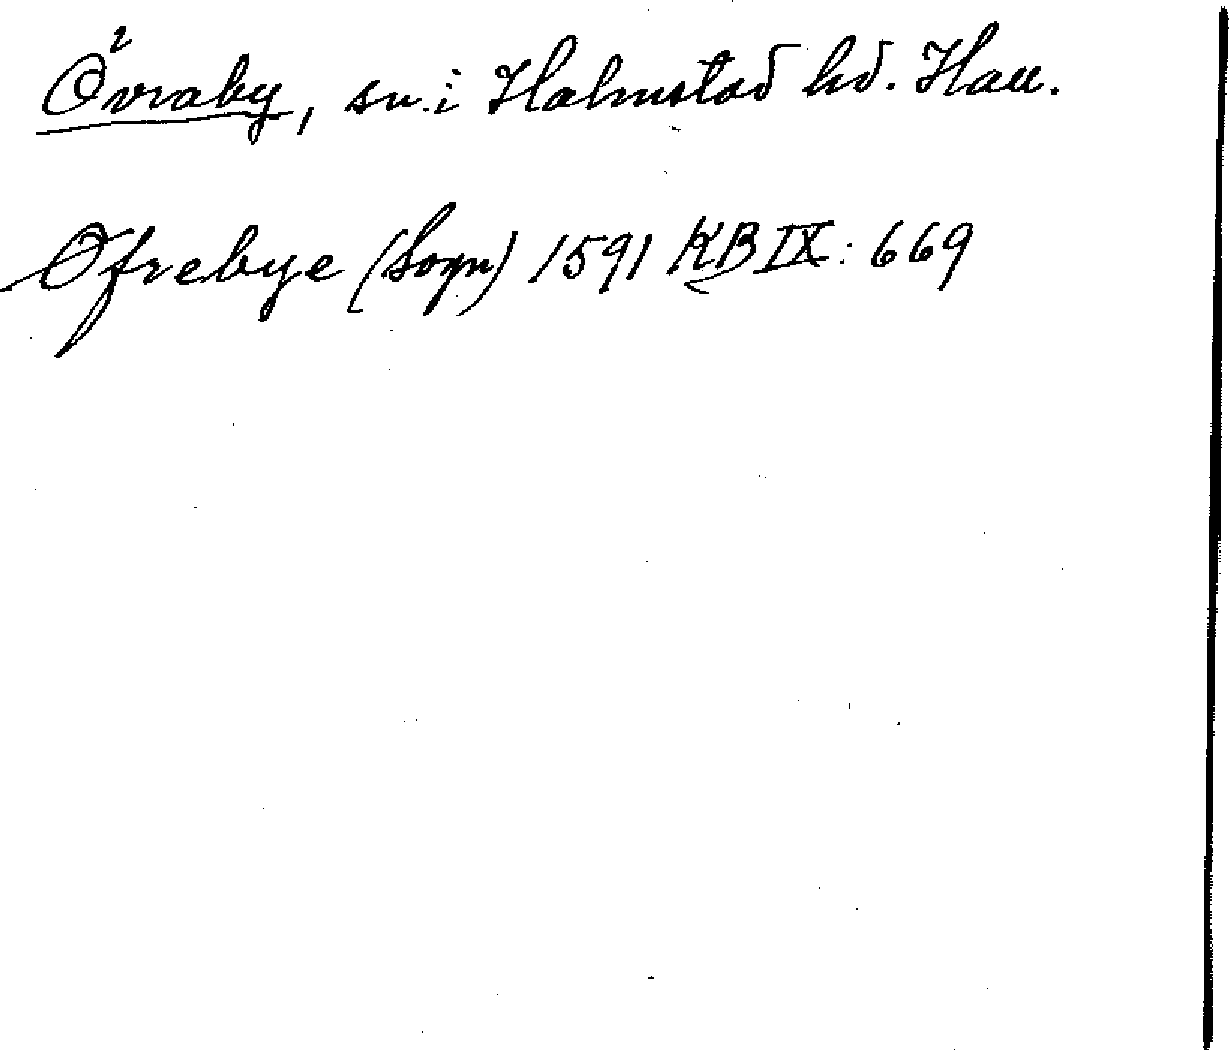 Övraby, sn. i Halmstad hd. Hall.
Øfrebye (Sogn) 1591 KB IX: 669